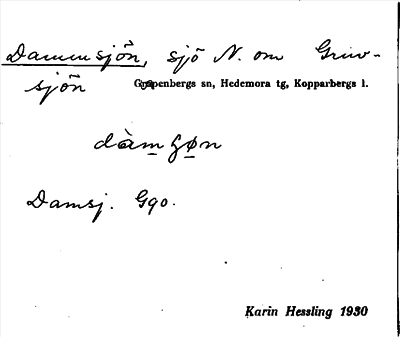 Dammsjön, sjö N. om Gruv-
sjön Garpenbergs sn, Hedemora tg, Kopparbergs l.
dàmʃøn
Damsj. Gqo.
Karin Hessling 1930